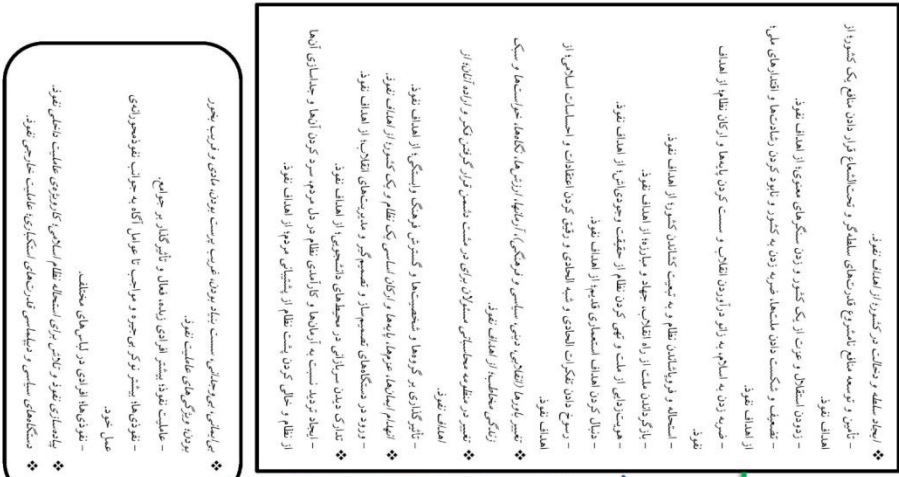 ❖ ایجاد سلطه و دخالت در کشور؛ از اهداف نفوذ.
- تأمین و توسعه منافع نامشروع قدرت‌های سلطه‌گر و تحت‌الشعاع قرار دادن منافع یک کشور؛ از
اهداف نفوذ.
- زدودن استقلال و عزت از یک کشور و زدن سنگرهای معنوی؛ از اهداف نفوذ.
- تضعیف و شکست دادن ملت‌ها، ضربه زدن به کشور و نابود کردن رشادت‌ها و اقتدارهای ملی؛
از اهداف نفوذ.
- ضربه زدن به اسلام، به زانو درآوردن انقلاب و سست کردن پایه‌ها و ارکان نظام؛ از اهداف
نفوذ.
- استحاله و فروپاشاندن نظام و به تبعیت کشاندن کشور؛ از اهداف نفوذ.
- بازگرداندن ملت از راه انقلاب، جهاد و مبارزه؛ از اهداف نفوذ.
- هویت‌زدایی از ملت و تهی کردن نظام از حقیقت وجودی‌اش؛ از اهداف نفوذ.
- دنبال کردن اهداف استعماری قدیم؛ از اهداف نفوذ.
- رسوخ دادن تفکرات الحادی و شبه الحادی و رقیق کردن اعتقادات و احساسات اسلامی؛ از
اهداف نفوذ.
تغییر باورها (انقلابی، دینی، سیاسی و فرهنگی)، آرمانها، ارزش‌ها، نگاه‌ها، خواست‌ها و سبک
زندگی مخاطب؛ از اهداف نفوذ.
❖ تغییر در منظومه محاسباتی مسئولان برای در مشت دشمن قرار گرفتن فکر و اراده آنان؛ از
اهداف نفوذ.
- تأثیرگذاری بر گروه‌ها و شخصیت‌ها و گسترش فرهنگ وابستگی؛ از اهداف نفوذ.
❖ انهدام ایمان‌ها، عزم‌ها، پایه‌ها و ارکان اساسی یک نظام و یک کشور؛ از اهداف نفوذ.
- ورود در دستگاه‌های تصمیم‌ساز و تصمیم‌گیر و مدیریت‌های انقلاب؛ از اهداف نفوذ.
❖ تدارک دیدن سربازانی در محیط‌های دانشجویی؛ از اهداف نفوذ.
- ایجاد تردید نسبت به آرمان‌ها و کارآمدی نظام در دل مردم، سرد کردن آن‌ها و جداسازی آن‌ها
از نظام و خالی کردن پشت نظام از پشتیبانی مردم؛ از اهداف نفوذ.
بی‌ایمانی، بی‌وجدانی، سست بنیاد بودن، غرب پرست بودن، مادی و فریب بخور
بودن؛ ویژگی‌های عاملیت نفوذ.
- عاملیت نفوذ؛ بیشتر افرادی زبده، فعال و تأثیرگذار بر جوامع.
- نفوذی‌ها؛ بیشتر نوکر بی‌جیره و مواجب تا عوامل آگاه به جوانب نفوذمحورانه‌ی
عمل خود.
- نفوذی‌ها؛ افرادی در لباس‌های مختلف.
❖ پیاده‌سازی نفوذ و تلاش برای استحاله نظام اسلامی؛ کارویژه‌ی عاملیت داخلی نفوذ.
❖ دستگاه‌های سیاسی و دیپلماسی قدرت‌های استکباری؛ عاملیت خارجی نفوذ.